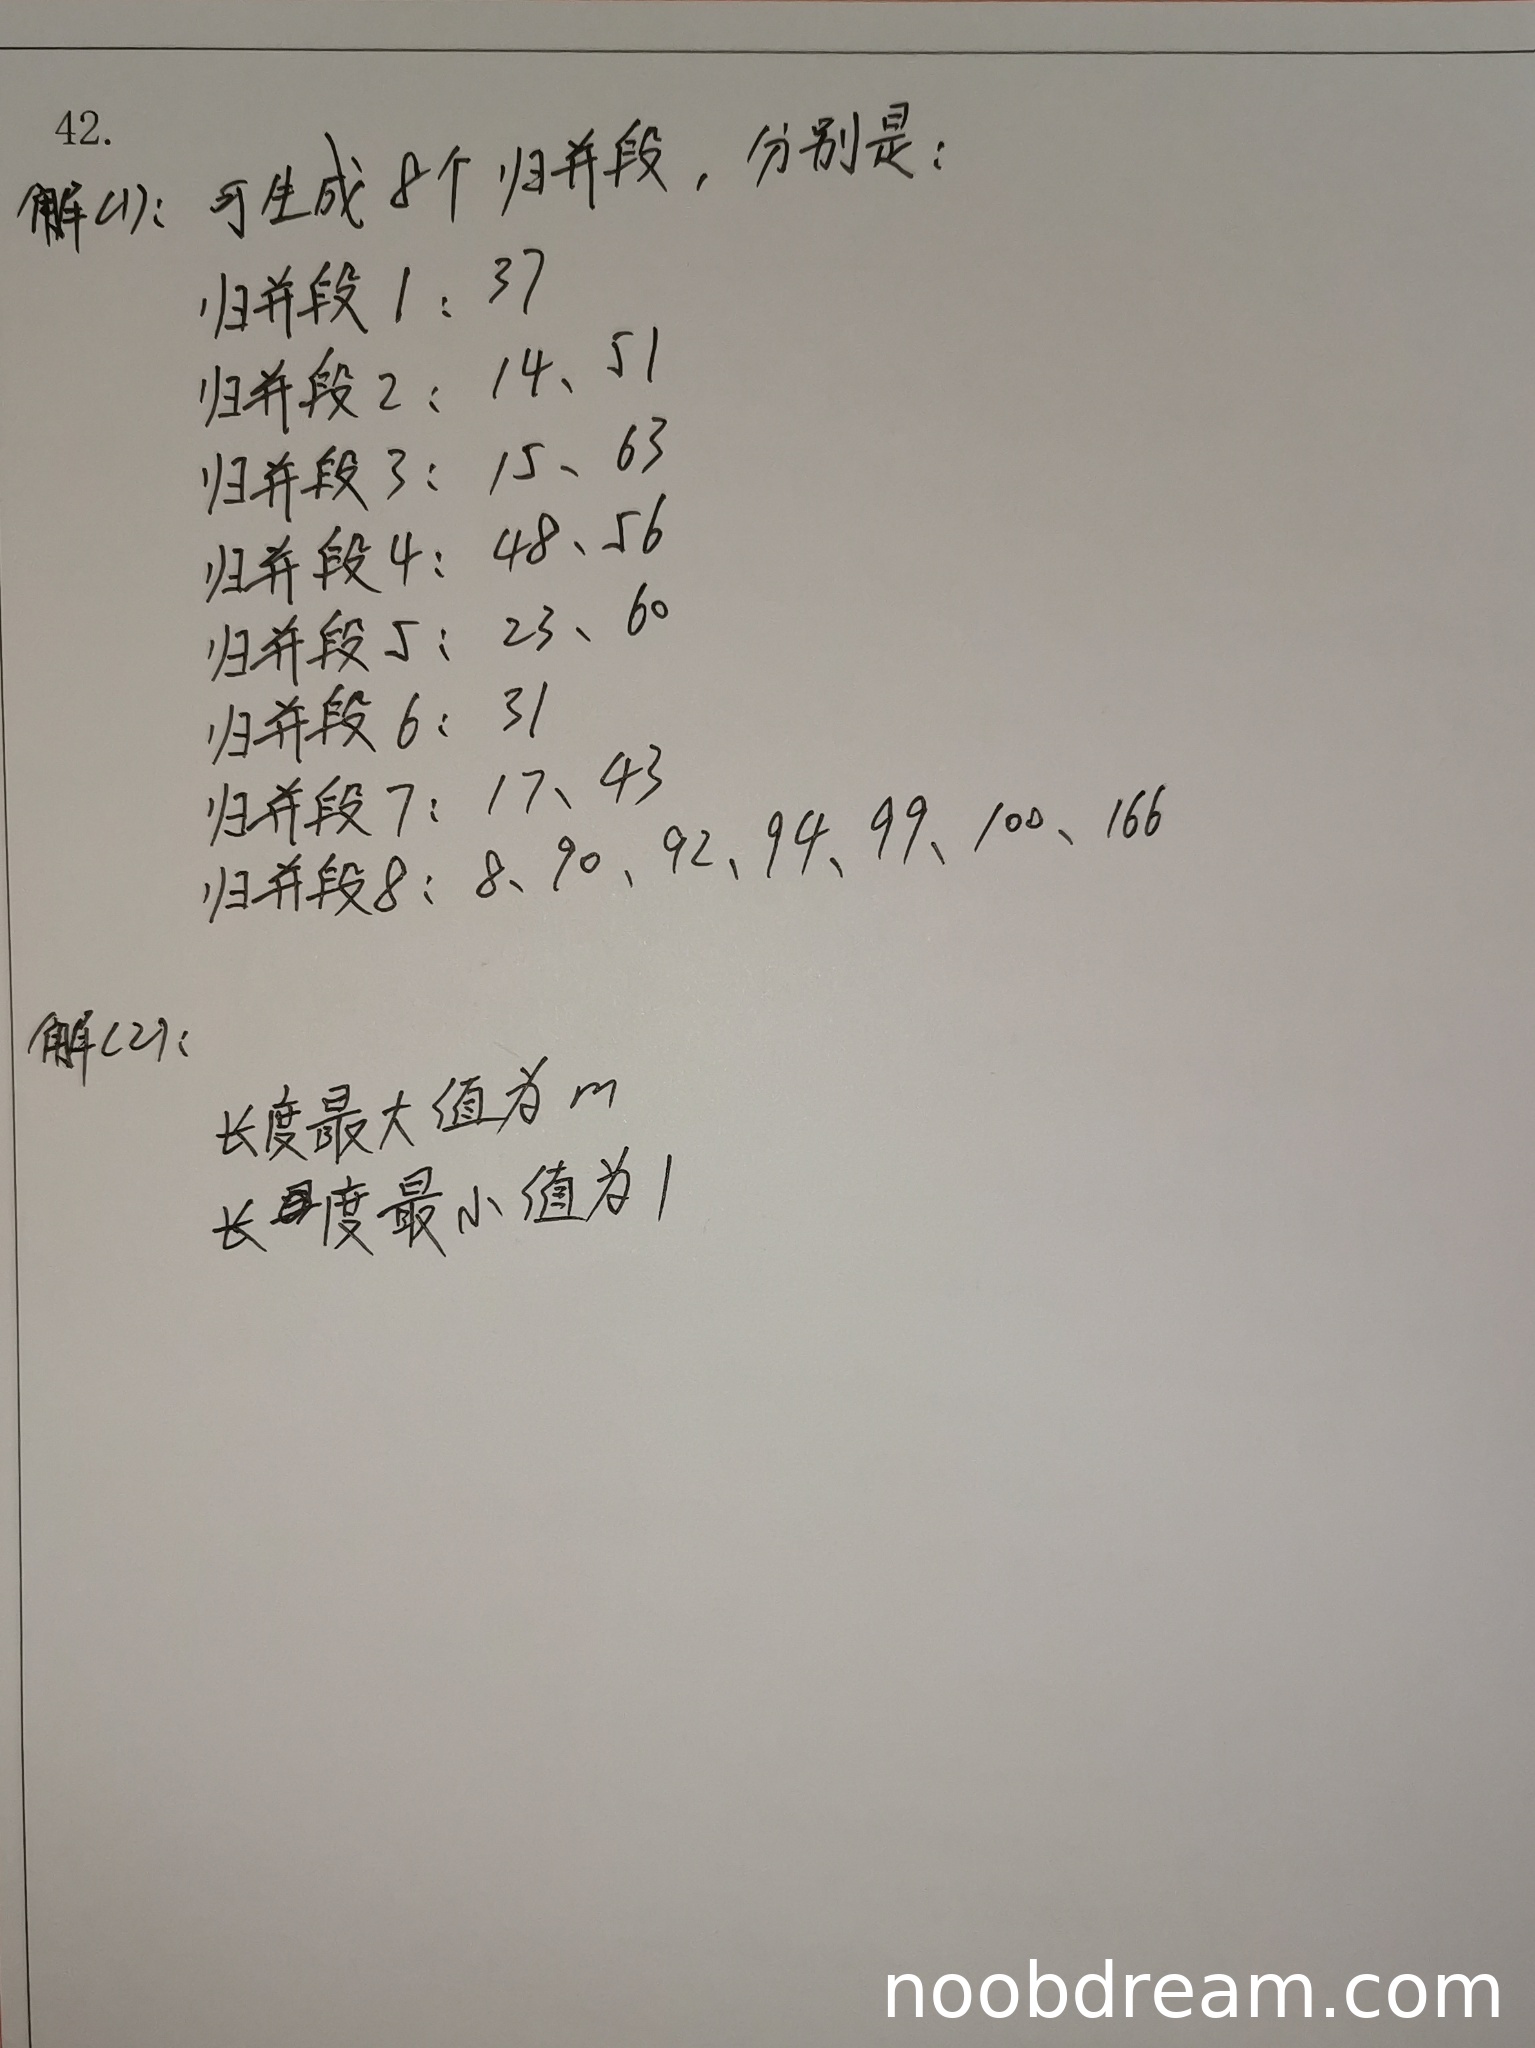 42.
解(1)：可生成8个归并段，分别是：
归并段1：37
归并段2：14、51
归并段3：15、63
归并段4：48、56
归并段5：23、60
归并段6：31
归并段7：17、43
归并段8：8、90、92、94、99、100、166
解(2)：
长度最大值为m
长度最小值为1
noobdream.com